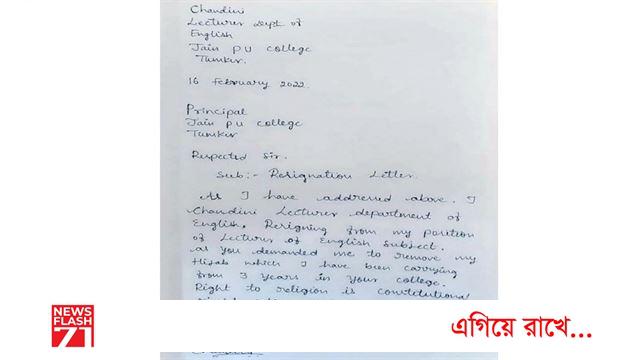 Chandini
Lecturer Dept of
English
Jain PU college
Tumkur.
16 February 2022
Principal
Jain PU college
Tumkur
Respected Sir.
Sub:- Resignation Letter.
As I have addressed above. I
Chandini Lecturer department of
English, Resigning from my position
of Lecturer of English subject.
as you demanded me to remove my
Hijab which I have been carrying
from 3 years in your college.
Right to religion is constitutional
NEWS
FLASH
71
এগিয়ে রাখে...